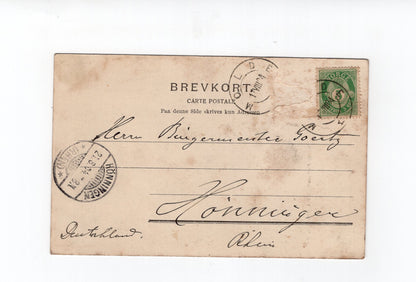 BREVKORT.
CARTE POSTALE
Paa denne Side skrives kun Adressen
MOLDE
NORGE
Herrn Bürgermeister Goertz
HÖNNINGEN
(RHEIN)
Hönningen
Rhein
Deutschland.